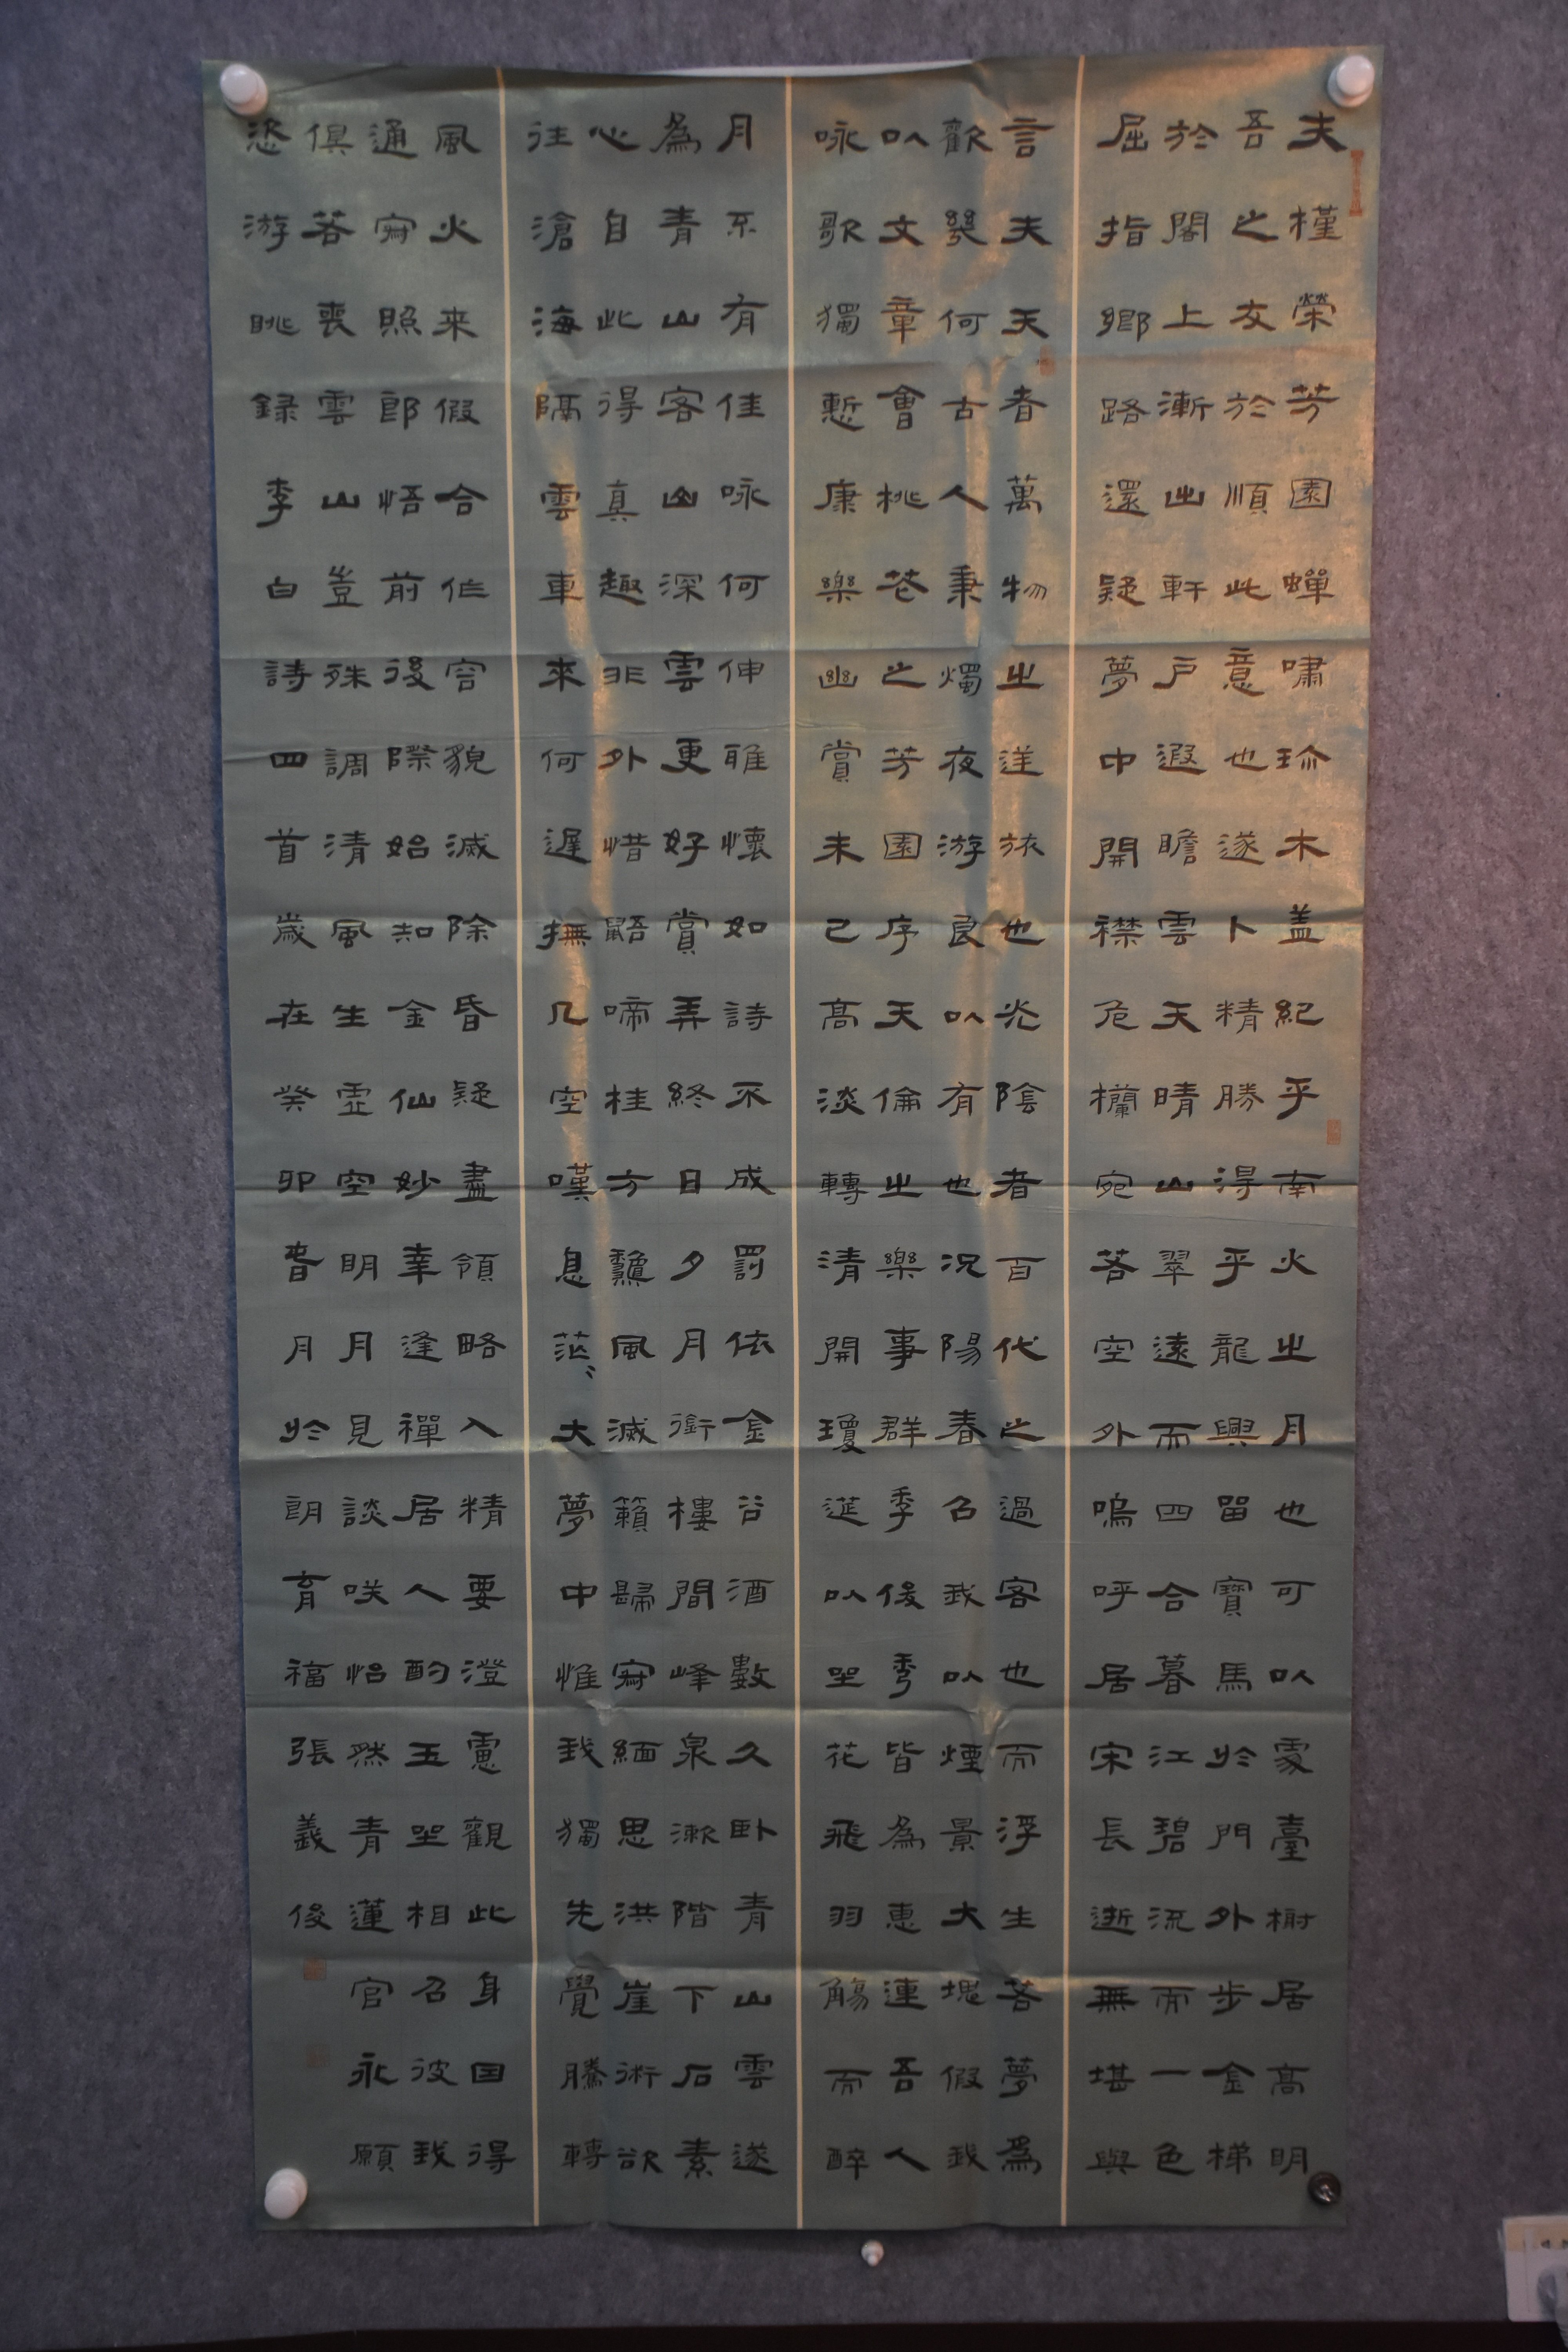 夫槿榮芳園蟬嘯珎木盖紀乎南火之月也可以處臺榭居高明
吾之友於順此意也遂卜精勝得乎龍興留寶馬於門外步金梯
於閣上漸出軒戶遐瞻雲天晴山翠遠而四合暮江碧流而一色
屈指鄉路還疑夢中開襟危欄宛若空外嗚呼居宋長逝無堪與
言夫天者萬物之逆旅也光陰者百代之過客也而浮生若夢為
歡幾何古人秉燭夜游良以有也況陽春召我以煙景大塊假我
以文章會桃花之芳園序天倫之樂事群季俊秀皆為惠連吾人
咏歌獨慙康樂幽賞未已高淡轉清開瓊筵以坐花飛羽觴而醉
月不有佳咏何伸雅懷如詩不成罰依金谷酒數久卧青山雲遂
為青山客山深雲更好賞弄終日夕月銜樓間峰泉漱階下石素
心自此得真趣非外惜鼯啼桂方龝風滅籟歸寂緬思洪崖術欲
往滄海隔雲車來何遲撫几空嘆息茫〻大夢中惟我獨先覺騰轉
風火来假合作容貌滅除昏疑盡領略入精要澄慮觀此身因得
通寂照郎悟前後際始知金仙妙幸逢禪居人酌玉坐相召彼我
俱若喪雲山豈殊調清風生虛空明月見談咲怡然青蓮宮永願
恣游眺録李白詩四首歲在癸卯春月於朗育福張義俊